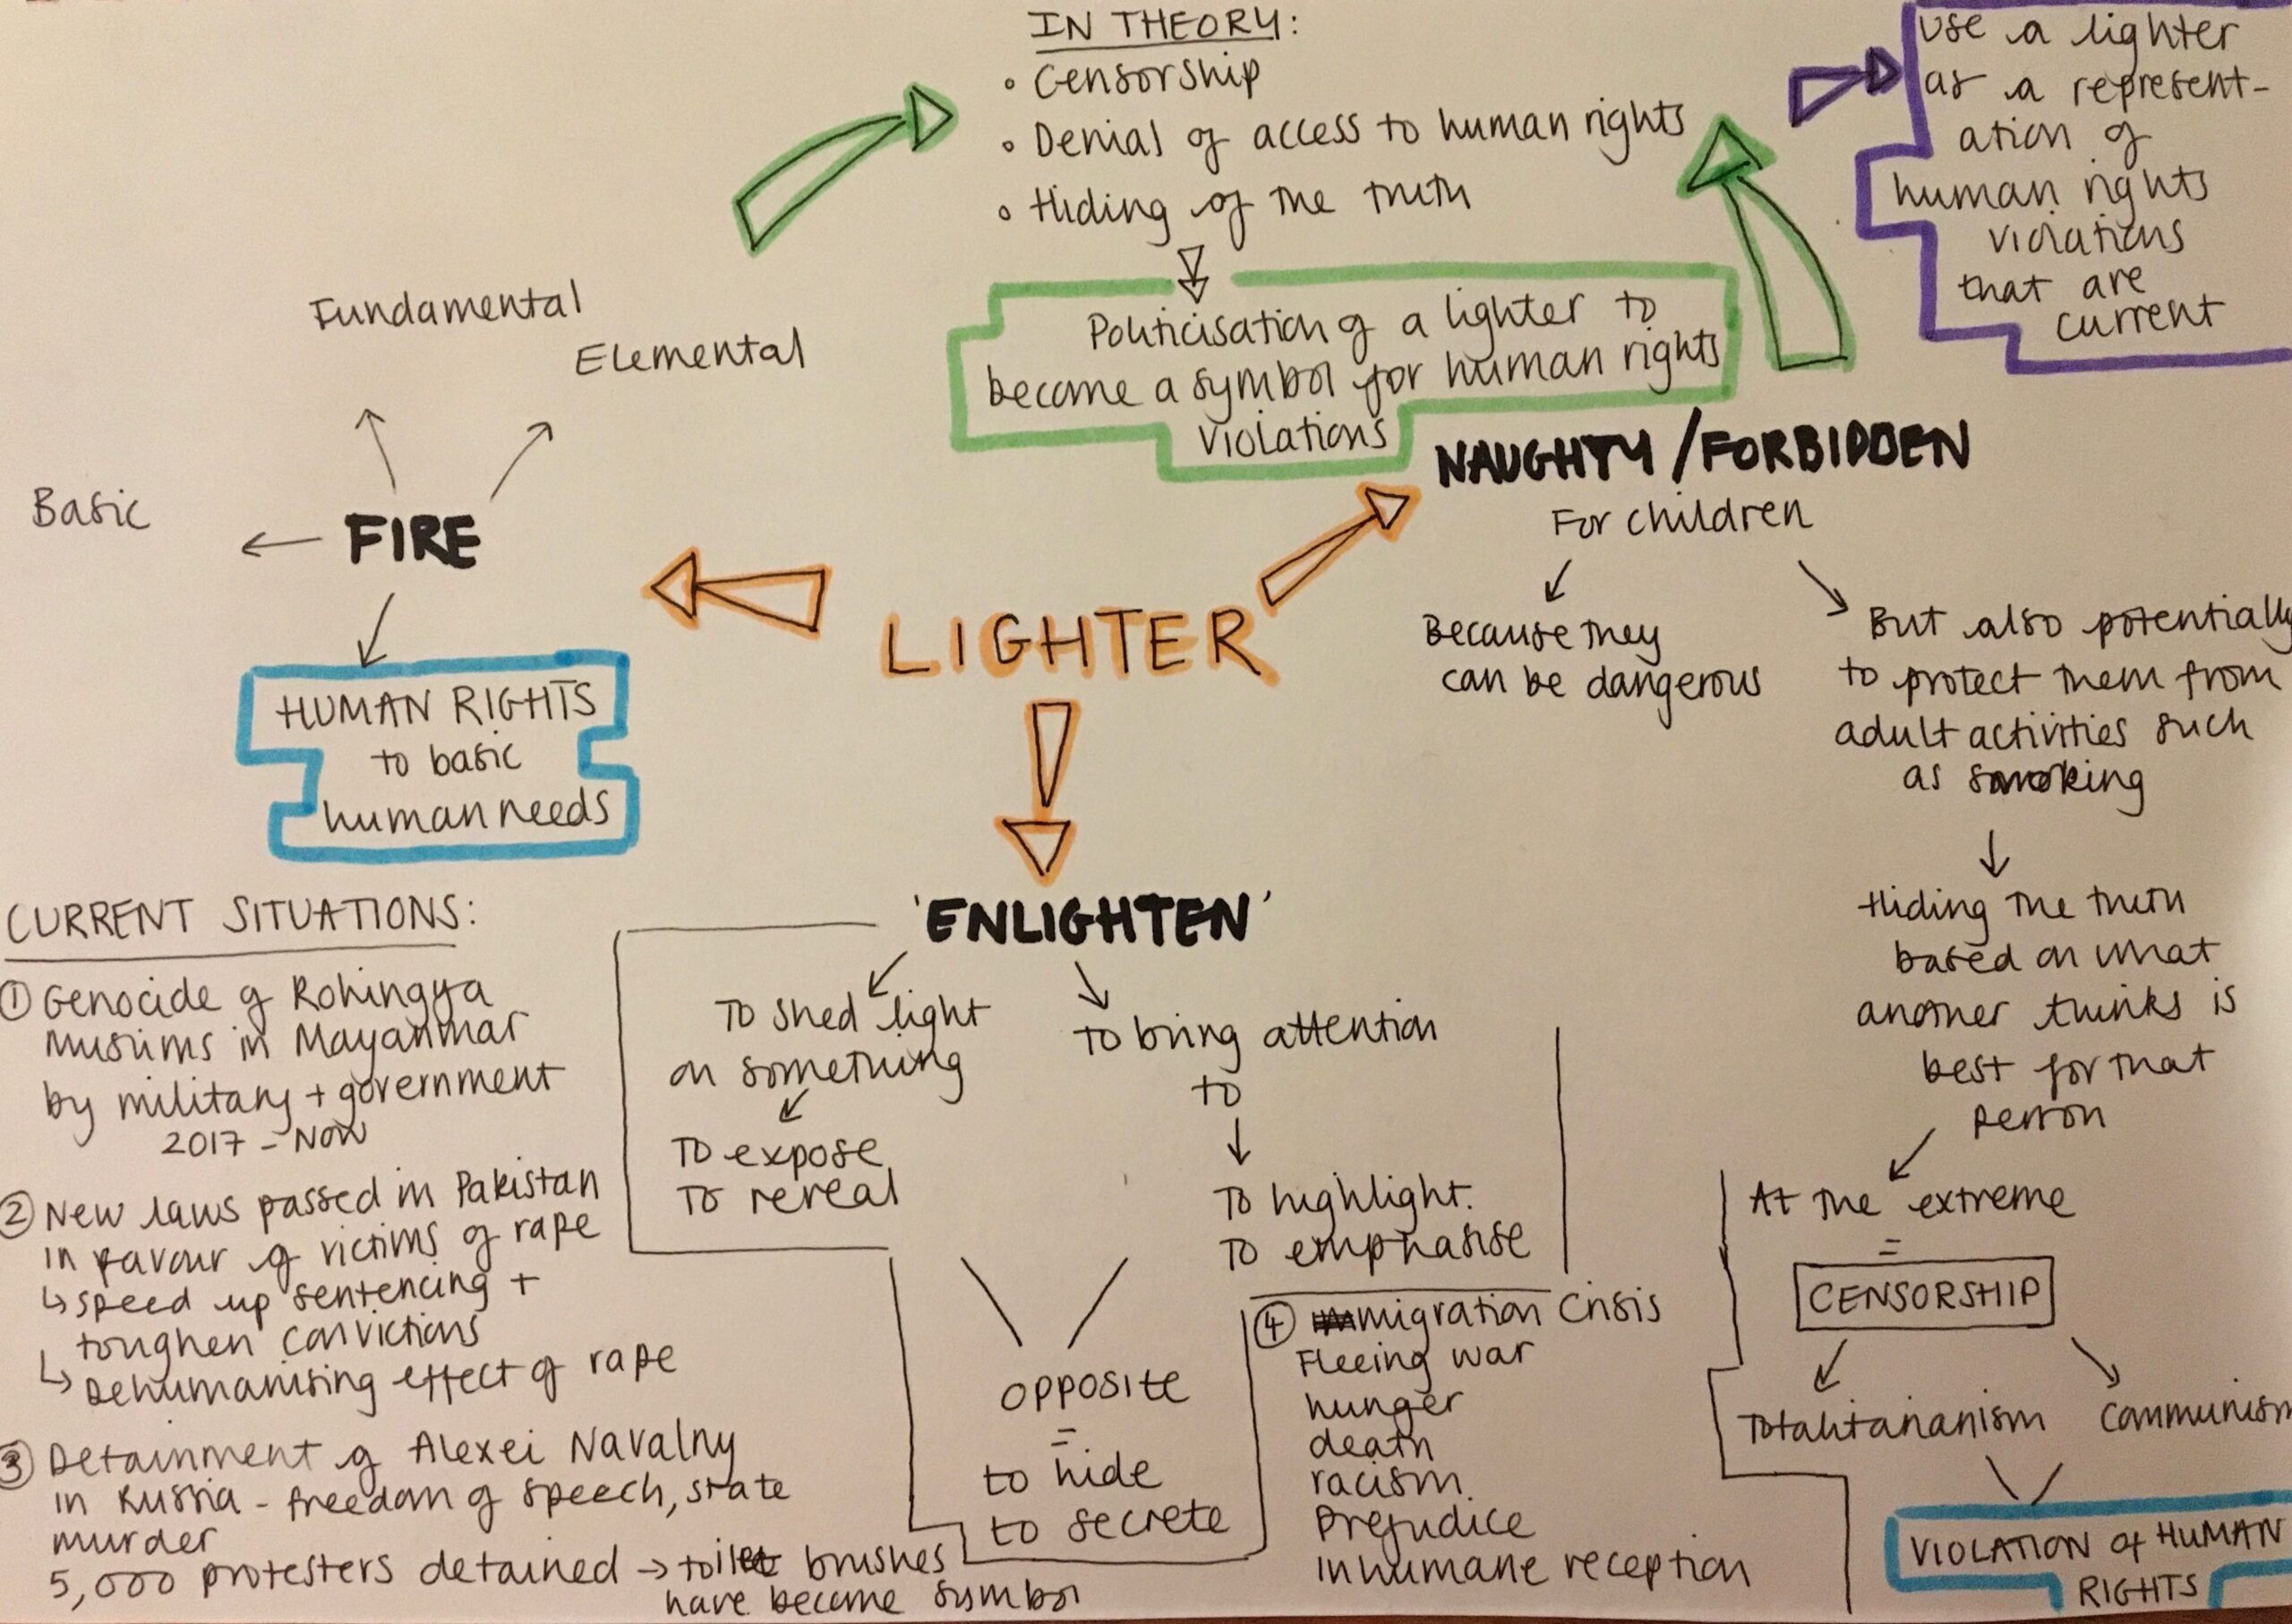 IN THEORY:
• Censorship
• Denial of access to human rights
• Hiding of the truth
Politicisation of a lighter to
become a symbol for human rights
violations
use a lighter
as a represent-
ation of
human rights
violations
that are
current
Fundamental
Elemental
Basic
FIRE
HUMAN RIGHTS
to basic
human needs
LIGHTER
NAUGHTY / FORBIDDEN
For children
Because they
can be dangerous
But also potentially
to protect them from
adult activities such
as smoking
Hiding the truth
based on what
another thinks is
best for that
person
At the extreme
=
CENSORSHIP
Totalitarianism
Communism
VIOLATION of HUMAN
RIGHTS
'ENLIGHTEN'
To shed light
on something
To expose
To reveal
to bring attention
to
To highlight.
To emphasise
OPPOSITE
=
to hide
to secrete
CURRENT SITUATIONS:
① Genocide of Rohingya
Muslims in Mayanmar
by military + government
2017 - NOW
② New laws passed in Pakistan
in favour of victims of rape
↳ speed up sentencing +
toughen convictions
↳ Dehumanising effect of rape
③ Detainment of Alexei Navalny
in Russia - freedom of speech, state
murder
5,000 protesters detained → toilet brushes
have become symbol
④ migration Crisis
Fleeing war
hunger
death
racism.
Prejudice
inhumane reception